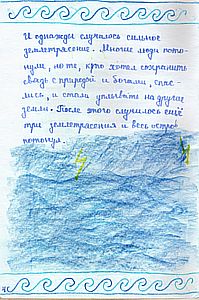 И однажды случалось сильное
землетрясение. Многие люди пото-
нули, но те, кто хотел сохранить
связь с природой и богами, спас-
лись, и стали уплывать на другие
земли. После этого случилось ещё
три землетрасения и весь остров
потонул.